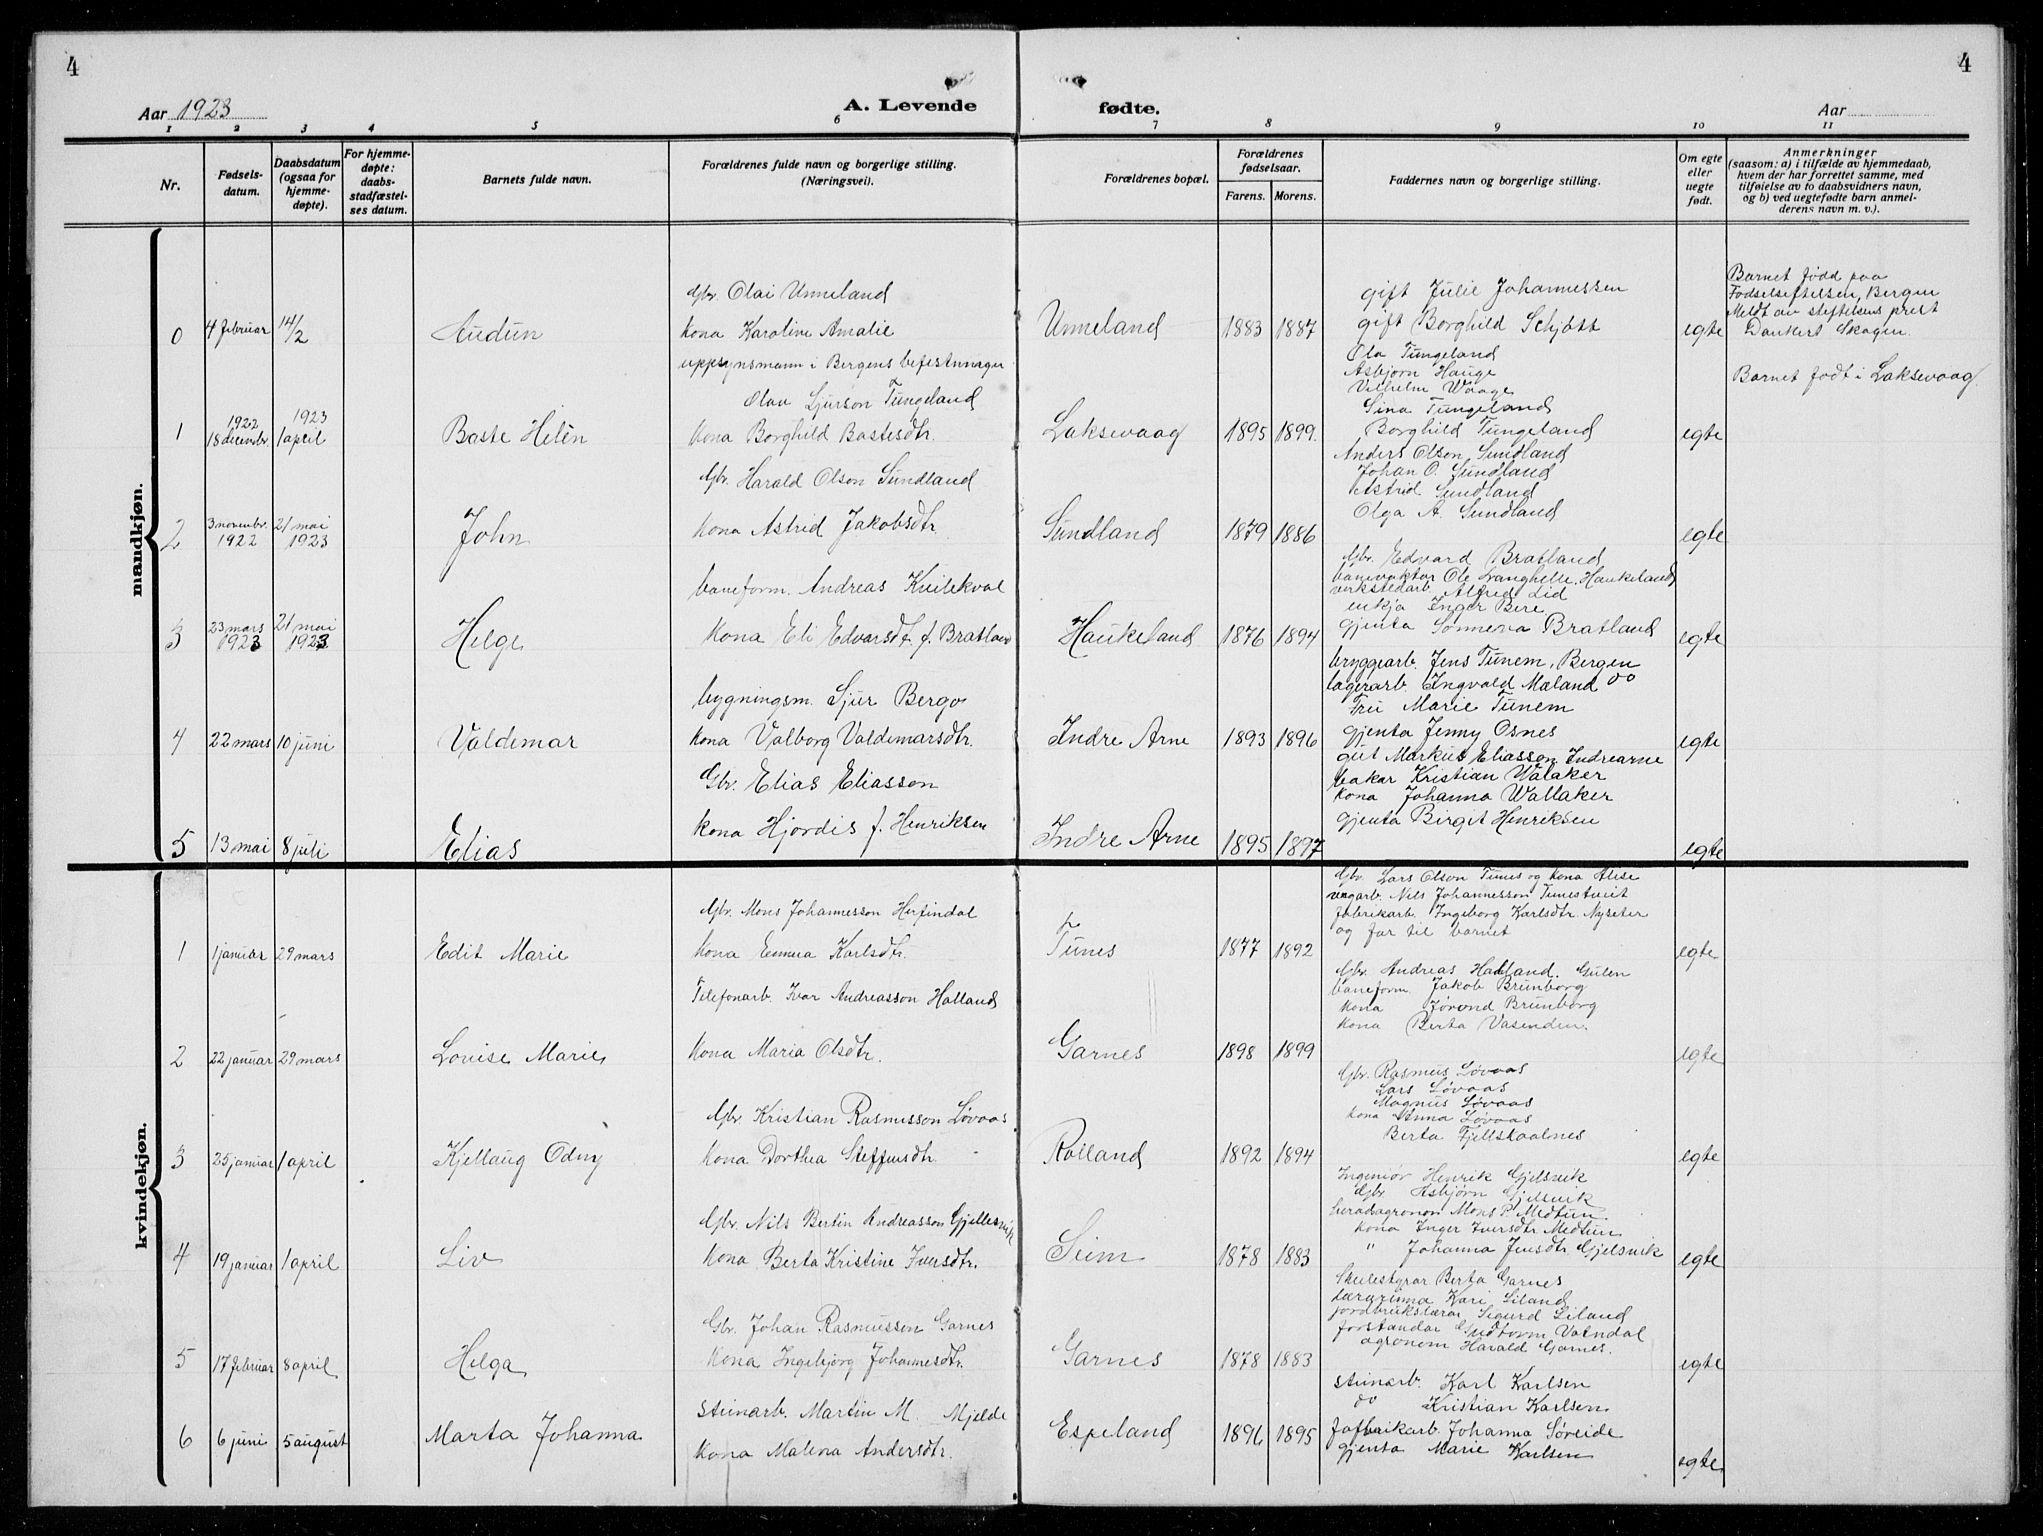 4
4
Aar 1923
A. Levende
fødte.
Aar
1 2 3 4 5 6 7 8 9 10 11
Nr.
Fødsels-
datum.
Daabsdatum
(ogsaa for
hjemme-
døpte).
For hjemme-
døpte:
daabs-
stadfæstel-
ses datum.
Barnets fulde navn.
Forældrenes fulde navn og borgerlige stilling.
(Næringsvei).
Forældrenes bopæl.
Forældrenes
fødselsaar.
Farens. Morens.
Faddernes navn og borgerlige stilling.
Om egte
eller
uegte
født.
Anmerkninger
(saasom: a) i tilfælde av hjemmedaab,
hvem der har forrettet samme, med
tilføielse av to daabsvidners navn,
og b) ved uegtefødte barn anmel-
derens navn m. v.).
mandkjøn.
0 4 februar 14/2 Audun
Gbr. Olai Unneland
kona Karoline Amalie
Unneland 1883 1887
gift Julie Johannessen
gift Borghild Schjøtt
egte
Barnet fødd paa
Fødselsstiftelsen, Bergen
Meldt av stiftelsens prest
Dankert Skagen.
1 1922 18 decembr. 1923 1 april Baste Helén
uppsynsmann i Bergens befestninger
Olav Sjurson Tungeland
Kona Borghild Bastesdtr.
Laksevaag 1895 1899.
Ola Tungeland
Asbjørn Hauge
Vilhelm Waage
Sina Tungeland
Borghild Tungeland
egte
Barnet født i Laksevaag.
2 3 novembr. 1922 21 mai 1923 John
Gbr. Harald Olson Sundland
Kona Astrid Jakobsdtr.
Sundland 1879 1886
Anders Olson Sundland
Johan O. Sundland
Astrid Sundland
Olga A. Sundland
egte
3 23 mars 1923 21 mai 1923 Helge
baneform. Andreas Kvilekval
Kona Eli Edvarsdtr. f. Bratland
Haukeland 1876 1894
Gbr. Edvard Bratland
banevaktar Ole Langhelle, Haukeland
verkstedarb. Alfred Lid
enkja Inger Bere
gjenta Sønneva Bratland
egte
4 22 mars 10 juni Valdemar
bygningsm. Sjur Bergo
kona Valborg Valdemarsdtr.
Indre Arne 1893 1896
bryggearb. Jens Tunem, Bergen
lagerarb. Ingvald Mæland do
Fru Marie Tunem
gjenta Jenny Osnes
egte
5 13 mai 8 juli Elias
Gbr. Elias Eliasson
kona Hjordis f. Henriksen
Indre Arne 1895 1897
gut Markus Eliasson Indrearne
bakar Kristian Walaker
kona Johanna Wallaker
gjenta Birgit Henriksen
egte
kvindekjøn.
1 1 januar 29 mars Edit Marie
Gbr. Mons Johannesson Herfindal
kona Emma Karlsdtr.
Tunes 1877 1892
Gbr. Lars Olson Tunes og kona Alise
vegarb. Nils Johannesson Tunestveit
fabrikarb. Ingeborg Karlsdtr. Nyseter
og far til barnet
egte
2 22 januar 29 mars Louise Marie
Telefonarb. Ivar Andreasson Halland
Kona Maria Olsdtr.
Garnes 1898 1899
Gbr. Andreas Halland. Gulen
baneform. Jakob Brunborg
kona Jørond Brunborg
kona Berta Vasenden.
egte
3 25 januar 1 april Kjellaug Odny
Gbr Kristian Rasmusson Løvaas
kona Dorthea Steffensdtr.
Rolland 1892 1894
Gbr. Rasmus Løvaas
Lars Løvaas
Magnus Løvaas
kona Anna Løvaas
Berta Fjellskaalnes
egte
4 19 januar 1 april Liv
Gbr. Nils Bertin Andreasson Gjellesvik
Kona Berta Kristine Iversdtr.
Seim 1878 1883
Ingeniør Henrik Gjelsvik
Gbr. Asbjørn Gjelsvik
heradagronom Mons P. Medtun.
kona Inger Iversdtr. Medtun
" Johanna Jensdtr. Gjelsvik
egte
5 17 februar 8 april Helga
Gbr. Johan Rasmussen Garnes
Kona Ingebjørg Johannesdtr.
Garnes 1878 1883
Skulestyrar Berta Garnes
lærarinna Kari Siland
jordbrukslærar Sigurd Siland
forstandar Gudtorm Valndal
agronom Harald Garnes.
egte
6 6 juni 5 august Marta Johanna
steinarb. Martin M. Mjelde
kona Malena Andersdtr.
Espeland 1896 1895
steinarb. Karl Karlsen
do Kristian Karlsen
fabrikarb. Johanna Søreide
gjenta Marie Karlsen
egte